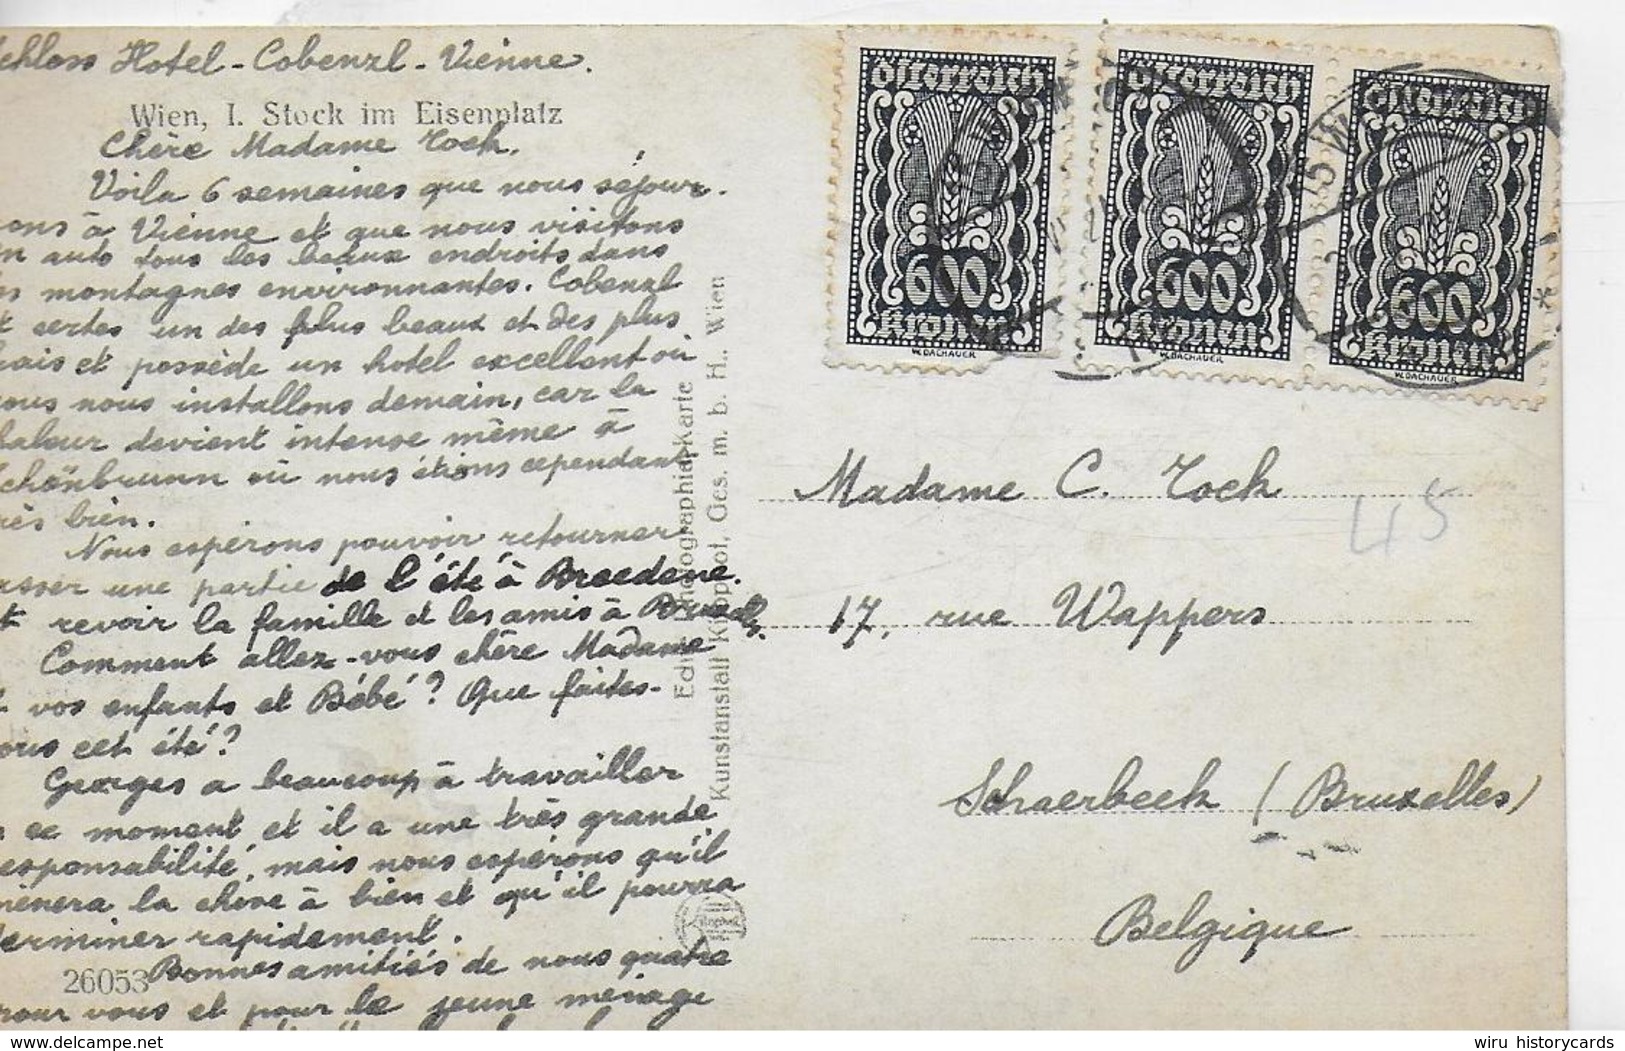 chloss Hotel - Cobenzl - Vienne.
Wien, I. Stock im Eisenplatz
Chère Madame Tock.
Voila 6 semaines que nous séjour-
ons à Vienne et que nous visitons
n auto tous les beaux endroits dans
es montagnes environnantes. Cobenzl
t certes un des plus beaux et des plus
rais et possède un hotel excellent où
ous nous installons demain, car la
haleur devient intense même à
chönbrunn où nous étions cependant
rès bien.
Nous espérons pouvoir retourner
asser une partie de l'été à Breedene.
t revoir la famille et les amis à Bruxelles.
Comment allez-vous chère Madame
t vos enfants et Bébé? Que faites-
ous cet été?
Georges a beaucoup à travailler
n ce moment et il a une très grande
esponsabilité, mais nous espérons qu'il
mènera la chose à bien et qu'il pourra
terminer rapidement.
26053
Bonnes amitiés de nous quatre
pour vous et pour le jeune ménage
Kunstanstalt Kilophot, Ges. m. b. H., Wien
Österreich
600
Kronen
W. DACHAUER
Österreich
600
Kronen
W. DACHAUER
Österreich
600
Kronen
W. DACHAUER
Madame C. Tock
45
17, rue Wappers
Schaerbeek (Bruxelles)
Belgique
delcampe.net
wiru historycards